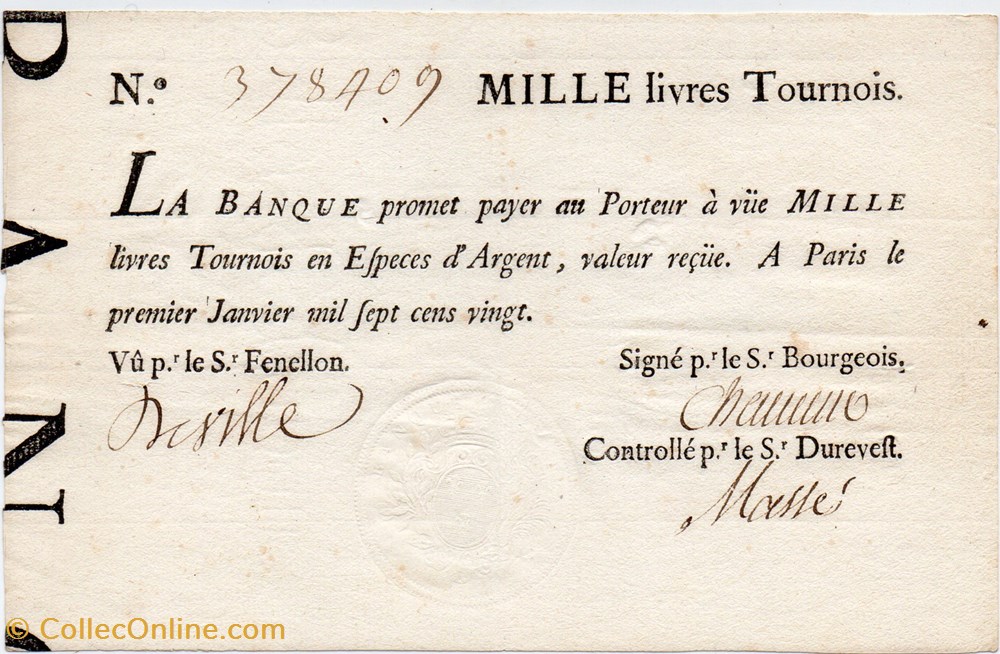 N.º 378409 MILLE livres Tournois.
LA BANQUE promet payer au Porteur à vüe MILLE
livres Tournois en Eſpeces d'Argent, valeur reçüe. A Paris le
premier Janvier mil ſept cens vingt.
Vû p.r le S.r Fenellon.
Signé p.r le S.r Bourgeois.
Deville
Controllé p.r le S.r Dureveſt.
Massé
© CollecOnline.com